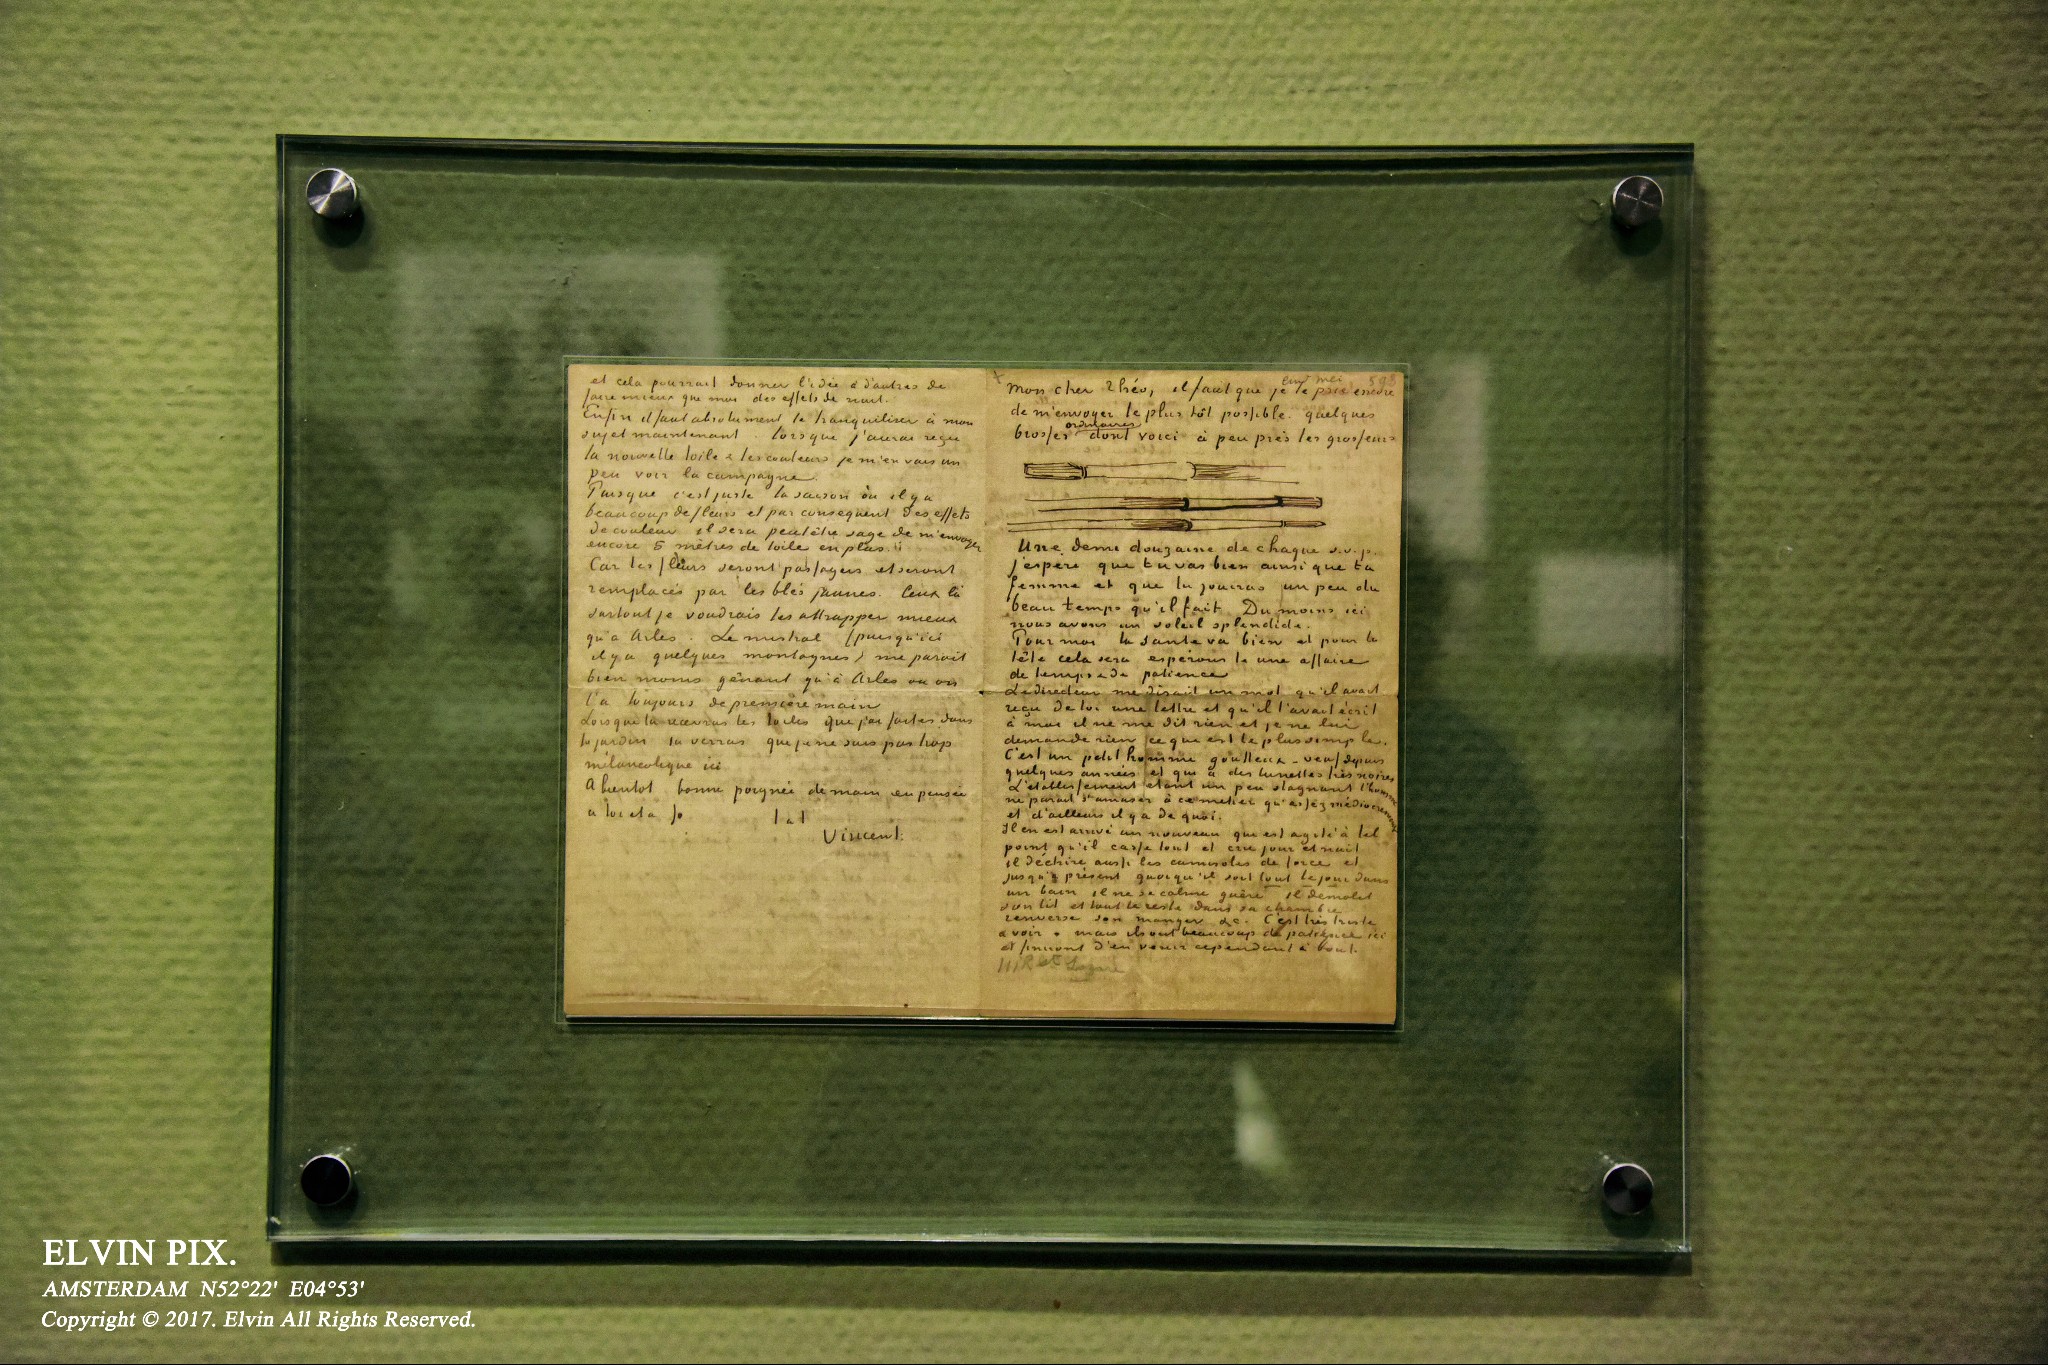 et cela pourrait donner l'idée à d'autres de
faire mieux que moi des effets de nuit.
Enfin il faut absolument te tranquiliser à mon
sujet maintenant. Lorsque j'aurai reçu
la nouvelle toile & les couleurs je m'en vais un
peu voir la campagne.
Puisque c'est juste la saison où il y a
beaucoup de fleurs et par consequent des effets
de couleur, il sera peutêtre sage de m'envoyer
encore 5 mètres de toile en plus.
Car les fleurs seront passagers et seront
remplacés par les blés jaunes. Ceux là
surtout je voudrais les attrapper mieux
qu'à Arles. Le mistral (puisqu'ici
il y a quelques montagnes) me parait
bien moins gênant qu'à Arles où on
l'a toujours de première main
Lorsque tu recevras les toiles que j'ai faites dans
le jardin tu verras que je ne suis pas trop
mélancolique ici
A bientot bonne poignée de main en pensée
a toi et a Jo
t à t
Vincent.
Mon cher Théo, il faut que je te prie encore
de m'envoyer le plus tôt possible quelques
ordinaires
brosses dont voici à peu près les grosseurs
Une demi douzaine de chaque s.v.p.
j'espère que tu vas bien ainsi que ta
femme et que tu jouiras un peu du
beau temps qu'il fait. Du moins ici
nous avons un soleil splendide.
Pour moi la santé va bien et pour la
tête cela sera espérons le une affaire
de temps & de patience
Le directeur me disait un mot qu'il avait
reçu de toi une lettre et qu'il t'avait écrit
à moi il ne me dit rien et je ne lui
demande rien ce que est le plus simple.
C'est un petit homme goutteux – veuf depuis
quelques années et qui a des lunettes très noires
L'établissement étant un peu stagnant l'homme
ne parait s'amuser à ce metier qu'assez médiocrement
et d'ailleurs il y a de quoi.
Il en est arrivé un nouveau qui est agité à tel
point qu'il casse tout et crie jour et nuit
il déchire aussi les camisoles de force et
jusqu'à présent quoiqu'il soit tout le jour dans
un bain il ne se calme guère il démolit
son lit et tout le reste dans sa chambre
renverse son manger &c. C'est très triste
à voir – mais ils ont beaucoup de patience ici
et finiront d'en venir cependant à bout.
ELVIN PIX.
AMSTERDAM N52°22' E04°53'
Copyright © 2017. Elvin All Rights Reserved.